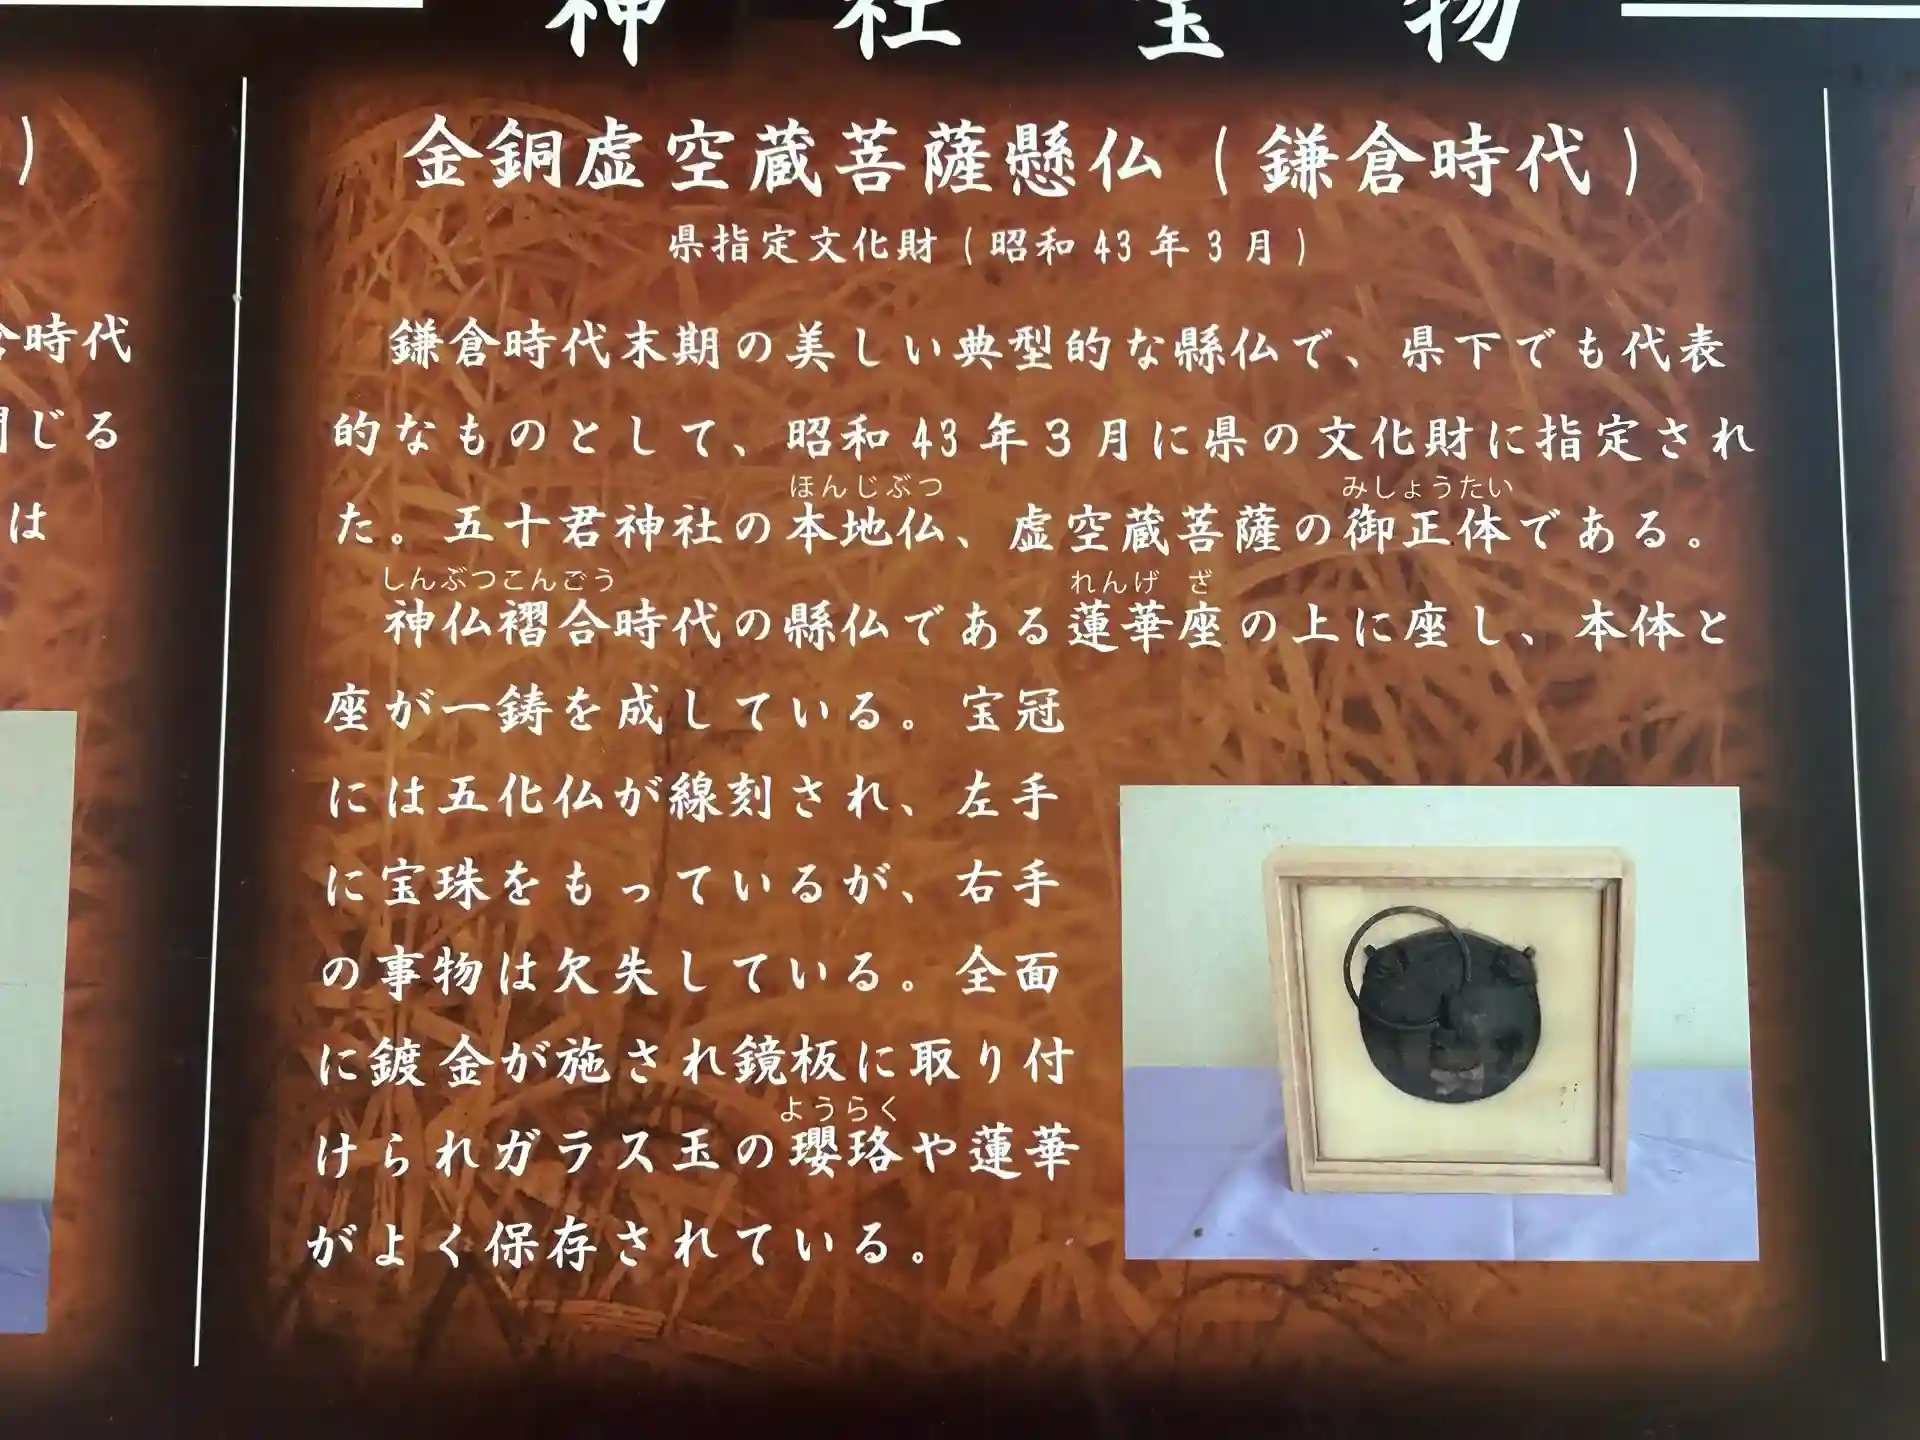 神社宝物
金銅虚空蔵菩薩懸仏(鎌倉時代)
県指定文化財(昭和43年3月)
鎌倉時代末期の美しい典型的な縣仏で、県下でも代表
的なものとして、昭和43年3月に県の文化財に指定され
ほんじぶつ みしょうたい
た。五十君神社の本地仏、虚空蔵菩薩の御正体である。
しんぶつこんごう れんげ ざ
神仏褶合時代の縣仏である蓮華座の上に座し、本体と
座が一鋳を成している。宝冠
には五化仏が線刻され、左手
に宝珠をもっているが、右手
の事物は欠失している。全面
に鍍金が施され鏡板に取り付
ようらく
けられガラス玉の瓔珞や蓮華
がよく保存されている。
)
時代
じる
は